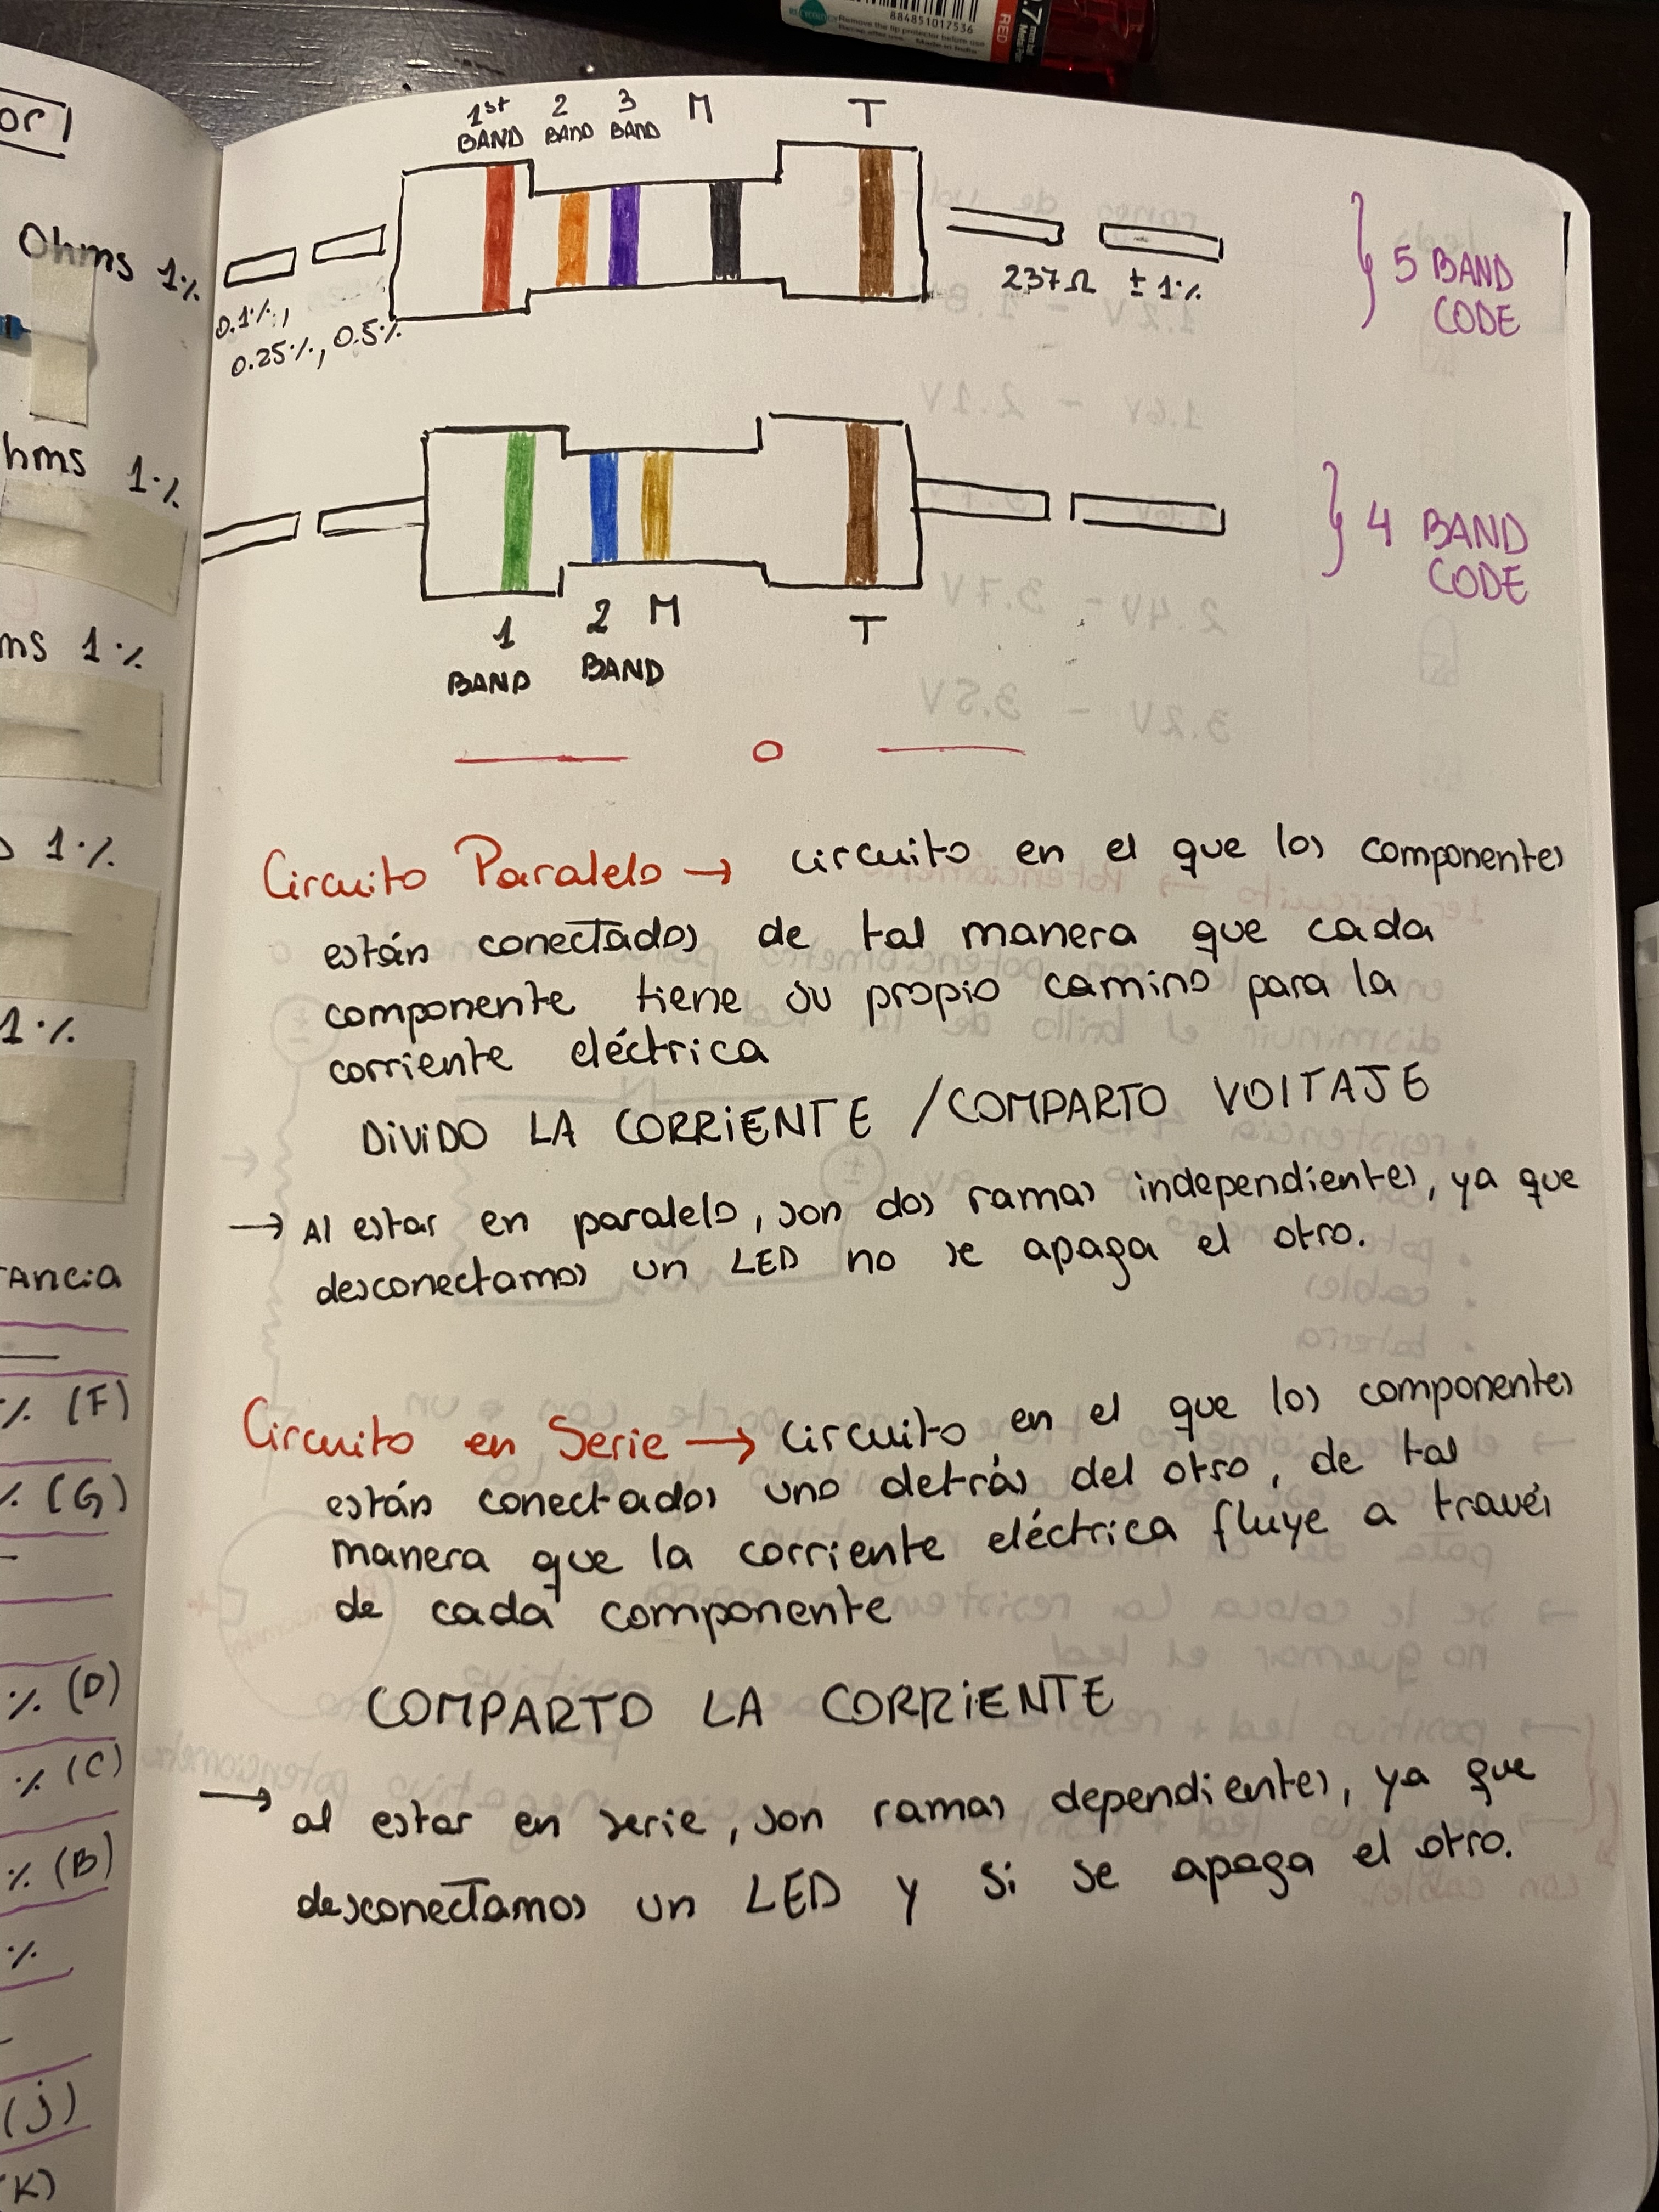 884851017536
Remove the tip protector before use
Made in India
RED
.7 mm
or)
Ohms 1%
hms 1%
ms 1%
1%
1%
TANCIA
% (F)
% (G)
% (D)
% (C)
% (B)
%
(J)
(K)
1st BAND
2 BAND
3 BAND
M
T
0.1%,
0.25%, 0.5%
237Ω ± 1%
5 BAND
CODE
1
BAND
2
BAND
M
T
4 BAND
CODE
Circuito Paralelo → circuito en el que los componentes
están conectados de tal manera que cada
componente tiene su propio camino para la
corriente eléctrica
DIVIDO LA CORRIENTE / COMPARTO VOLTAJE
→ Al estar en paralelo, son dos ramas independientes, ya que
desconectamos un LED no se apaga el otro.
Circuito en Serie → circuito en el que los componentes
están conectados uno detrás del otro, de tal
manera que la corriente eléctrica fluye a través
de cada componente
COMPARTO LA CORRIENTE
→ al estar en serie, son ramas dependientes, ya que
desconectamos un LED y si se apaga el otro.